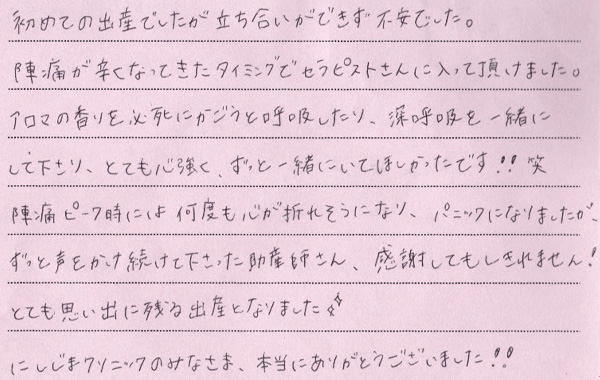 初めての出産でしたが立ち合いができず不安でした。
陣痛が辛くなってきたタイミングでセラピストさんに入って頂けました。
アロマの香りを必死にかごうと呼吸したり、深呼吸を一緒に
して下さり、とても心強く、ずっと一緒にいてほしかったです!!笑
陣痛ピーク時には何度も心が折れそうになり、パニックになりましたが、
ずっと声をかけ続けて下さった助産師さん、感謝してもしきれません!
とても思い出に残る出産となりました✨
にしじまクリニックのみなさま、本当にありがとうございました!!